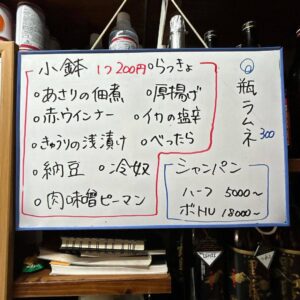 小鉢 1つ200円 ○らっきょ
○あさりの佃煮 ○厚揚げ
○赤ウインナー ○イカの塩辛
○きゅうりの浅漬け ○べったら
○納豆 ○冷奴
○肉味噌ピーマン
◎瓶ラムネ 300
シャンパン
ハーフ 5000～
ボトル 18000～